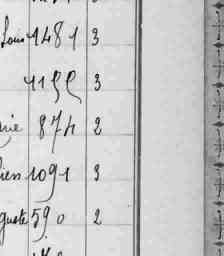 Louis 1481 3
1155 3
rie 874 2
ien 1091 3
guste 590 2